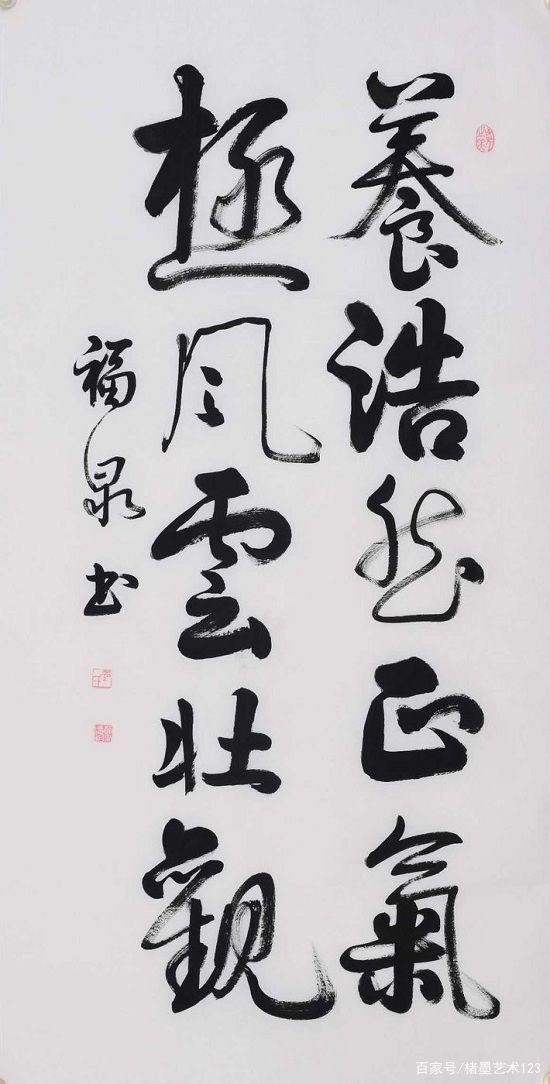 養浩然正氣
極風雲壮觀
福泉书
百家号/楮墨艺术123